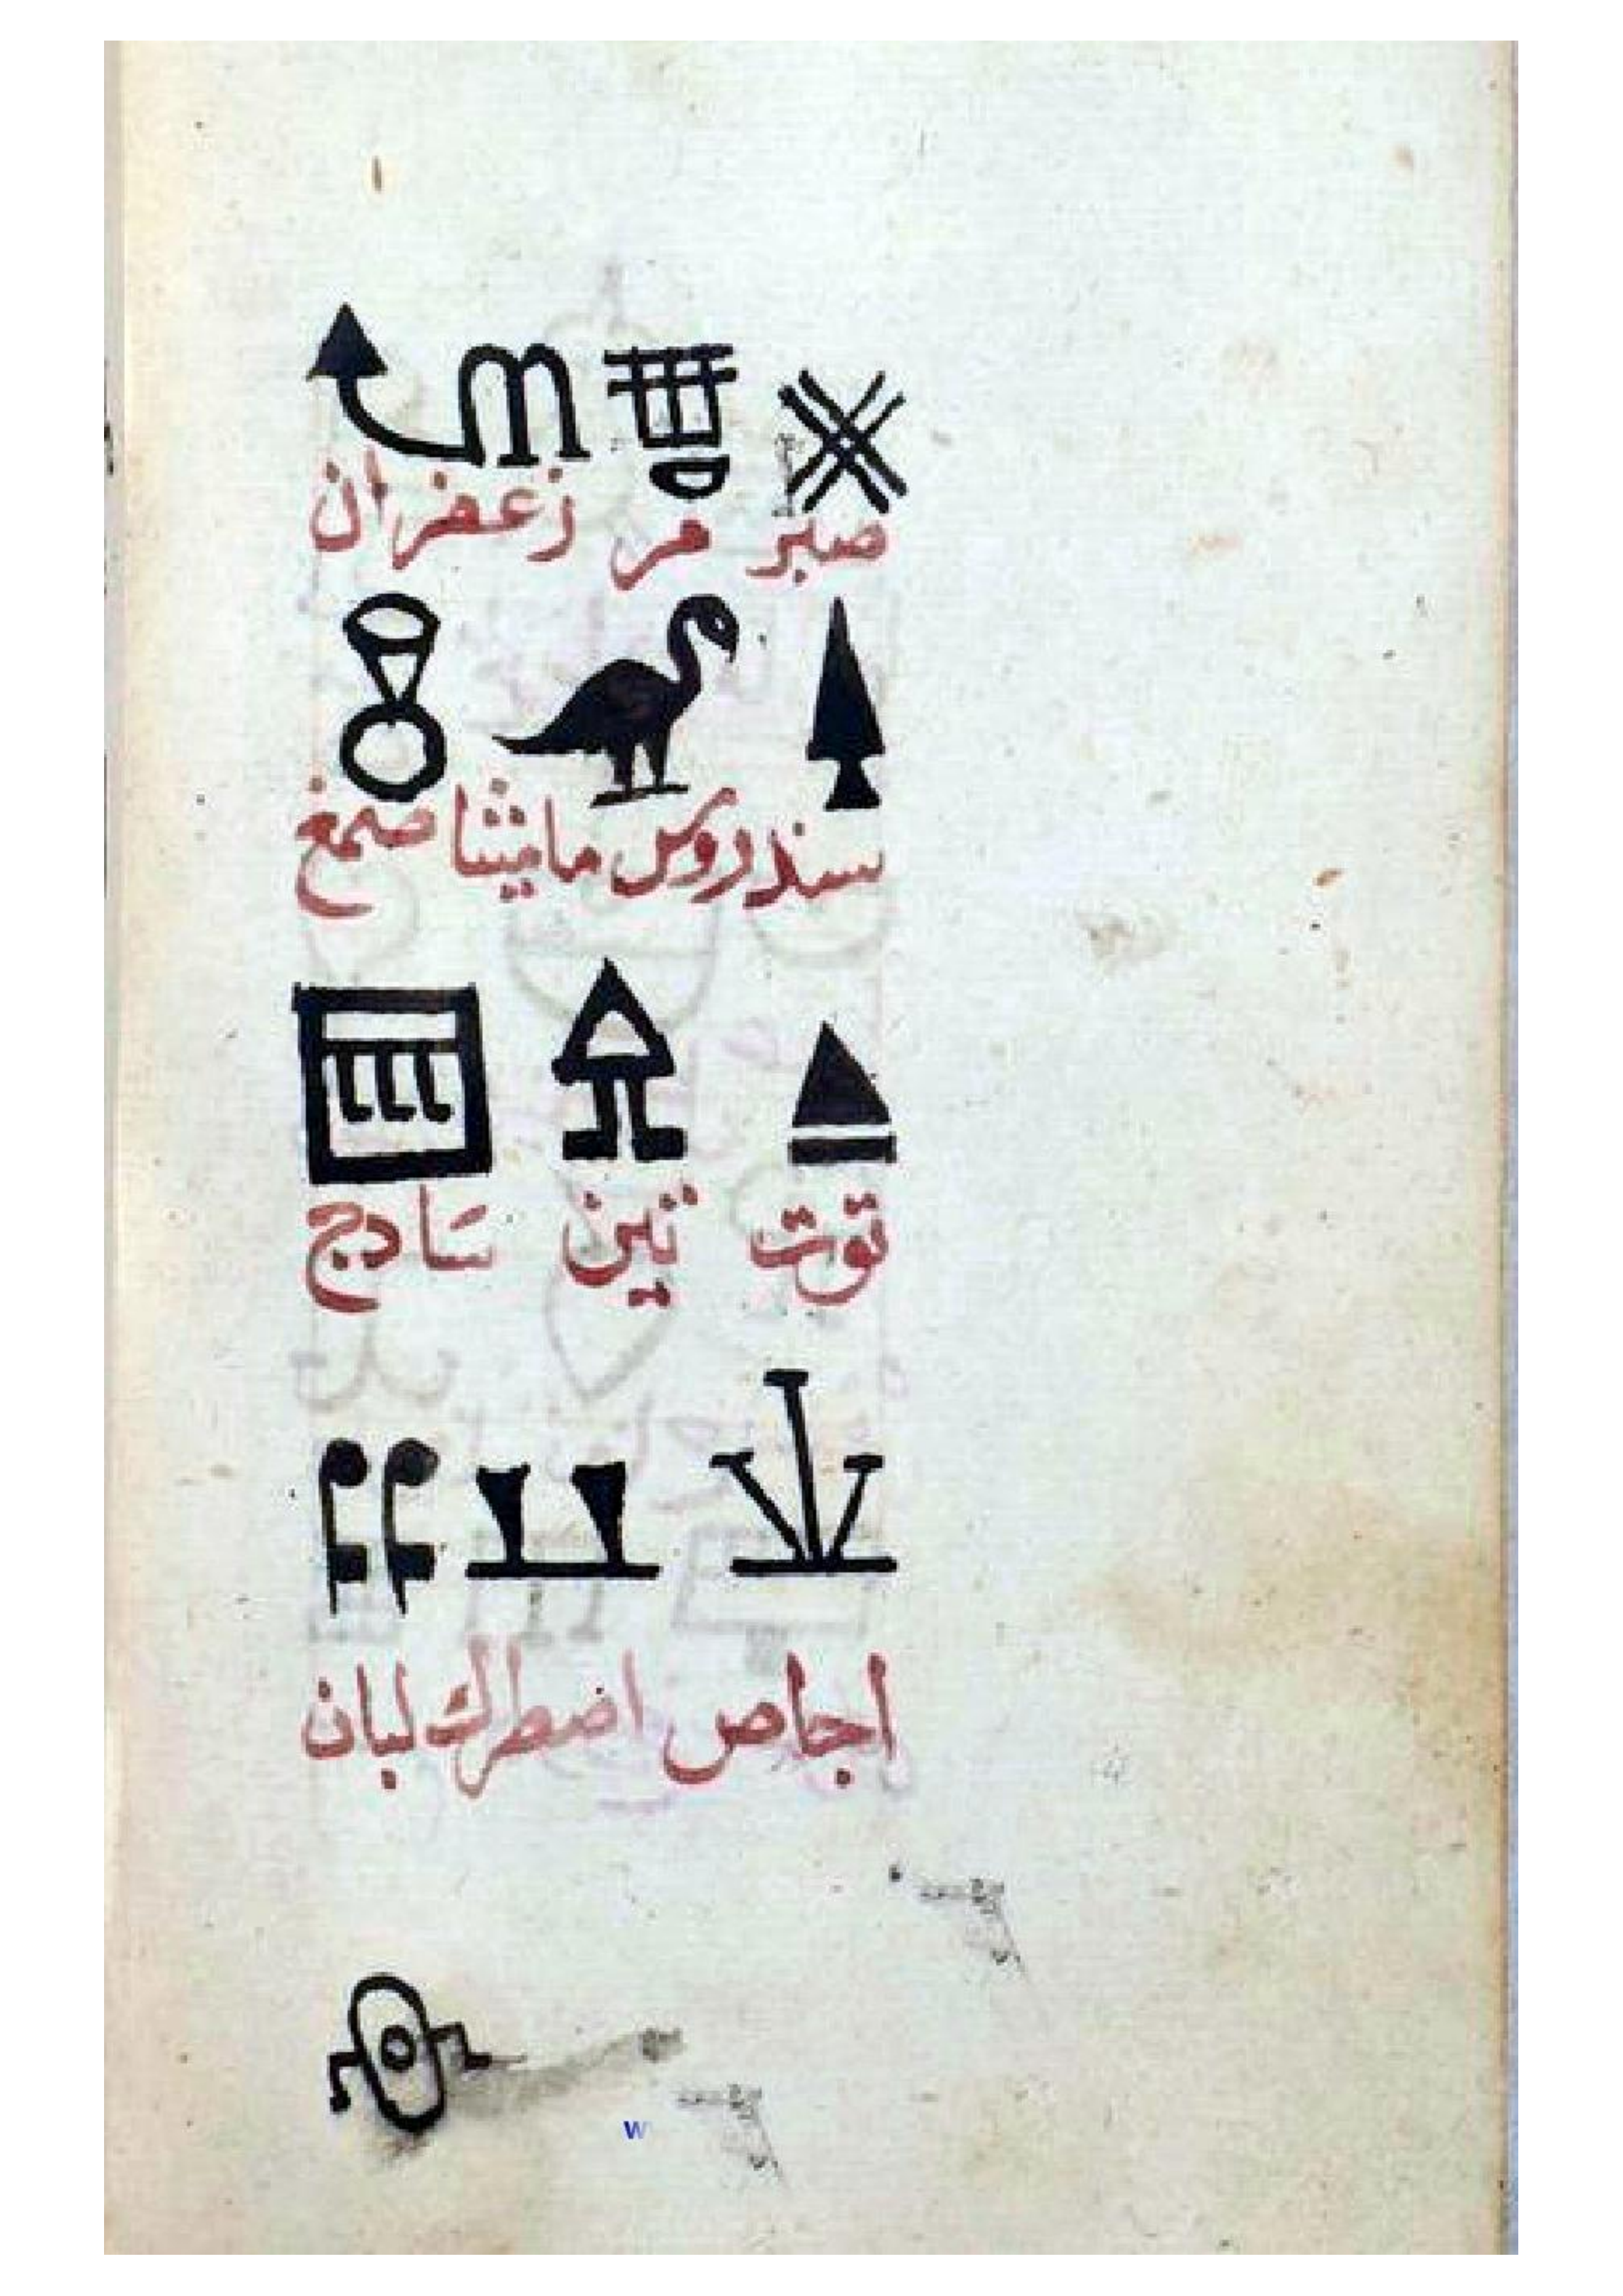 صبر مر زعفران
سندروس ماميثا صمغ
توت تين سادج
اجاص اصطرك لبان
w